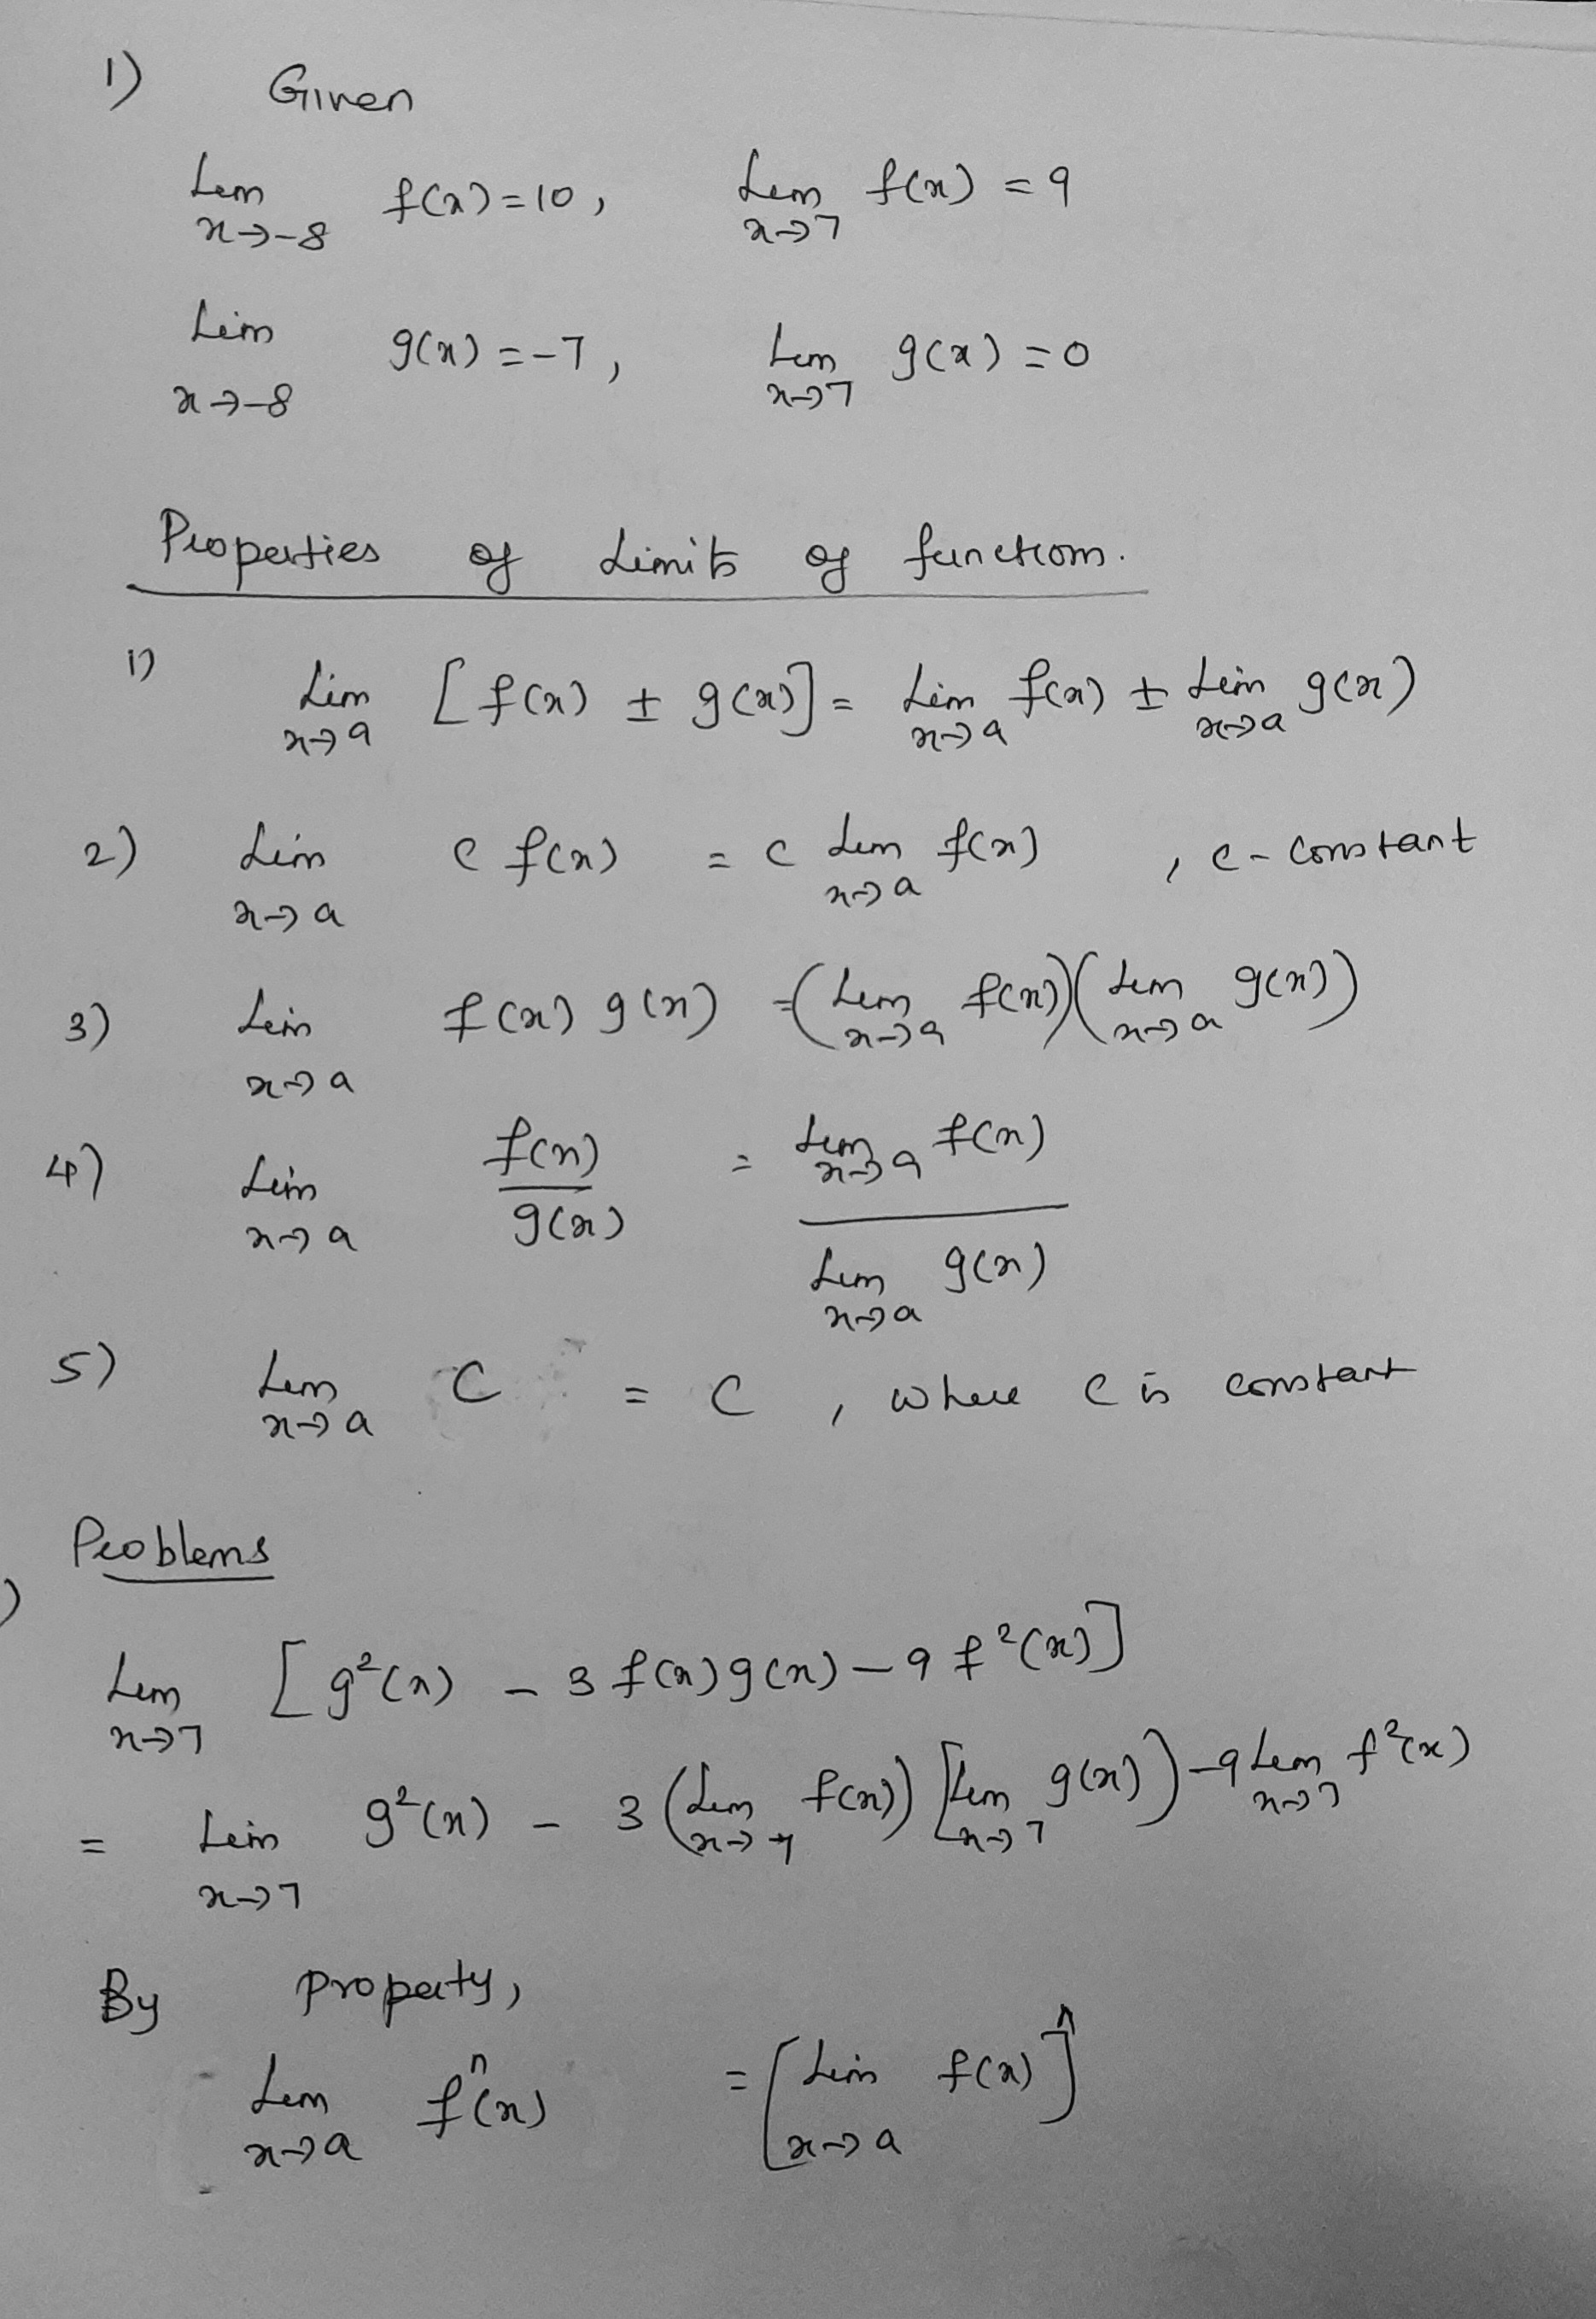 1) Given
Lim x→-8 f(x)=10, Lim x→7 f(x) = 9
Lim x→-8 g(x) = -7, Lim x→7 g(x) = 0
Properties of Limits of function.
1) Lim x→a [f(x) ± g(x)] = Lim x→a f(x) ± Lim x→a g(x)
2) Lim x→a c f(x) = c Lim x→a f(x) , c - constant
3) Lim x→a f(x) g(x) = (Lim x→a f(x))(Lim x→a g(x))
4) Lim x→a f(x)/g(x) = Lim x→a f(x) / Lim x→a g(x)
5) Lim x→a C = C , where c is constant
Problems
)
Lim x→7 [g²(x) - 3 f(x) g(x) - 9 f²(x)]
= Lim x→7 g²(x) - 3 (Lim x→7 f(x)) [Lim x→7 g(x)) - 9 Lim x→7 f²(x)
By property,
Lim x→a fⁿ(x) = [Lim x→a f(x)]ⁿ